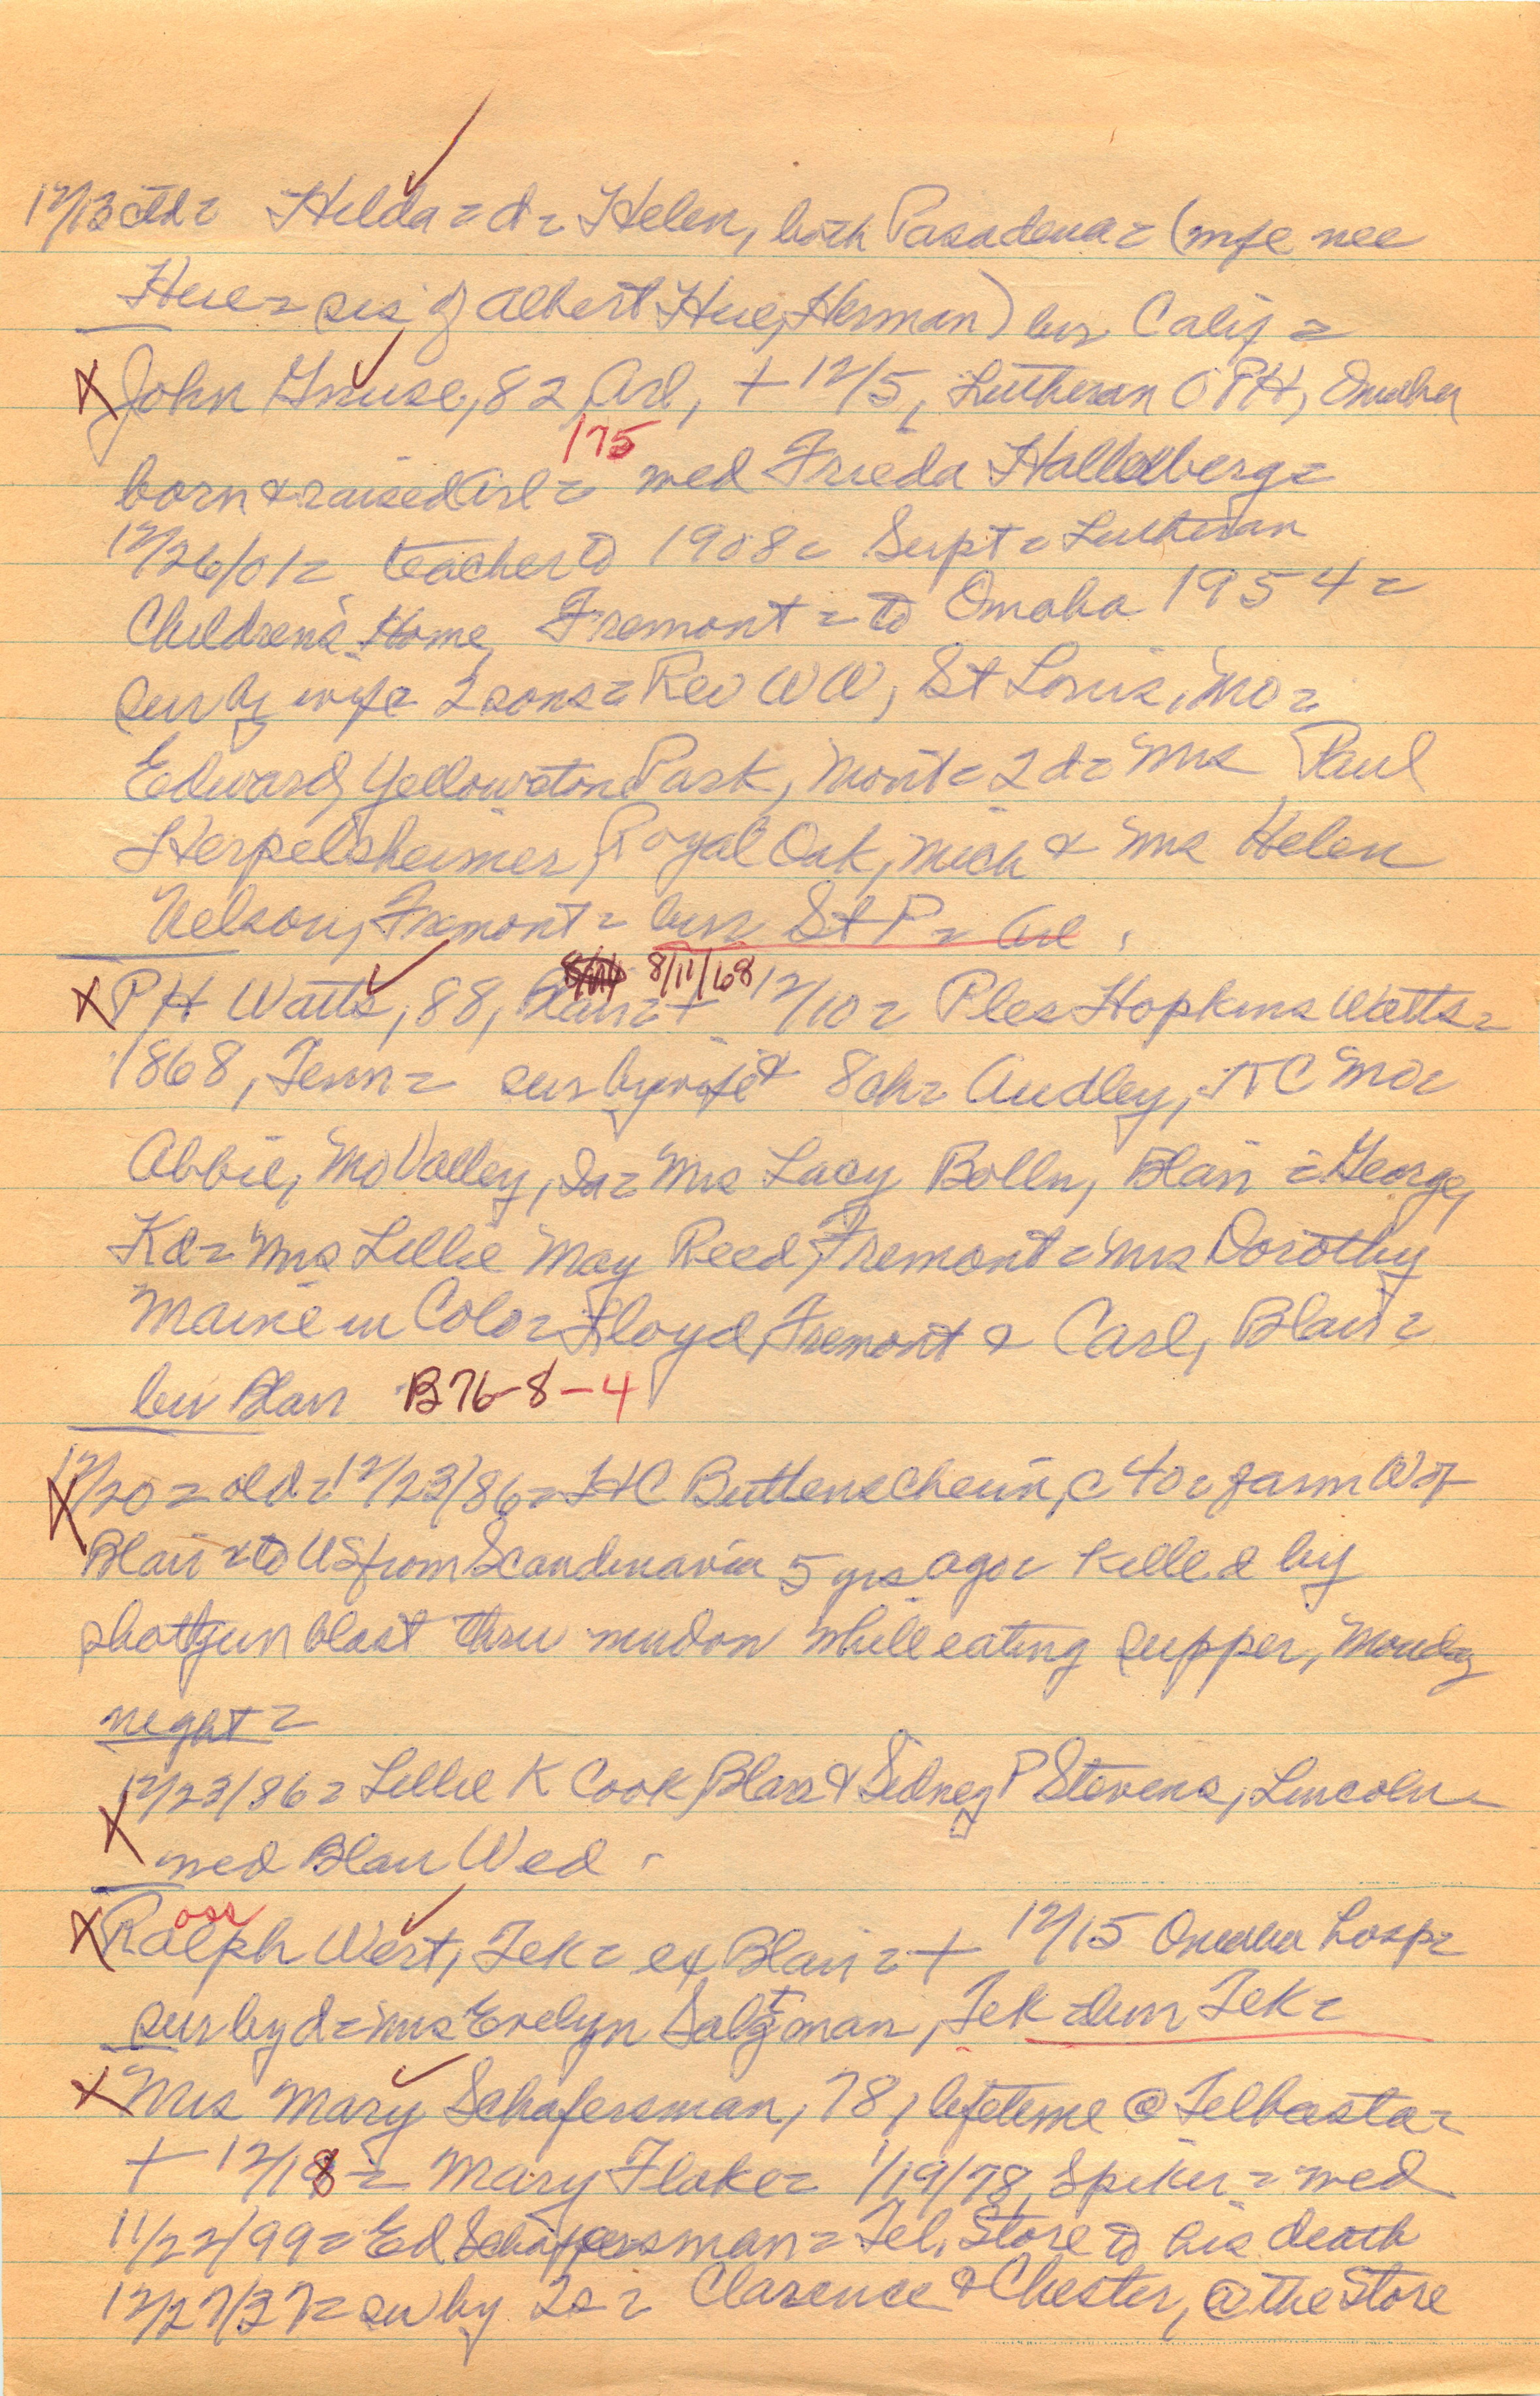 12/13 ctd = Hilda = d = Helen, both Pasadena = (wife nee
Hue = sis of Albert Hue, Herman) bur Calif =
X John Gnuse, 82 Arl, + 12/5, Lutheran OPH, Omaha
175
born & raised Arl = med Frieda Halldberg =
12/26/01 = teacher to 1908 = Supt = Lutheran
Children's Home, Fremont = to Omaha 1954 =
sur by wife 2 sons = Rev WW, St Louis, Mo =
Edward, Yellowston Park, Mont = 2 d = Mrs Paul
Herpelsheimer, Royal Oak, Mich & Mrs Helen
Nelson, Fremont = bur St P = Arl.
8/11/68
X PH Watts, 88, Blair = + 12/10 = Ples Hopkins Watts =
1868, Tenn = sur by wife & 8 ch = Audley, KC Mo =
Abbie, Mo Valley, Ia = Mrs Lacy Bolln, Blair = George,
Kd = Mrs Lillie May Reed, Fremont = Mrs Dorothy
Maine in Colo = Floyd, Fremont & Carl, Blair =
bur Blair B76-8-4
X 12/20 = old = 12/23/86 = HC Buttenscheun, c 40 = farm W of
Blair = to US from Scandinavia 5 yrs ago = killed by
shottgun blast thru window while eating supper, Monday
night =
X 12/23/86 = Lillie K Cook, Blair & Sidney P Stevens, Lincoln =
med Blair Wed.
oss
X Ralph West, Tek = ex Blair = + 12/15 Omaha hosp =
sur by d = Mrs Evelyn Saltzman, Tek = bur Tek =
X Mrs Mary Schafersman, 78, lifetime @ Telbasta =
+ 12/18 = Mary Flake = 1/19/78, Spiker = med
11/22/99 = Ed Schafersman = Tel. Store to his death
12/27/37 = sur by 2s = Clarence & Chester, @ the Store